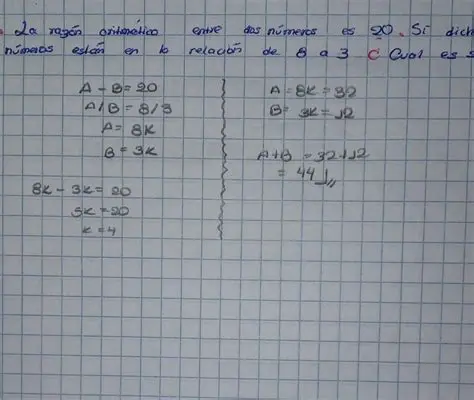 La razón aritmética entre dos números es 20. Si dich
números están en la relación de 8 a 3 ¿ Cual es s
A - B = 20
A/B = 8/3
A = 8K
B = 3K
8K - 3K = 20
5K = 20
K = 4
A = 8K = 32
B = 3K = 12
A+B = 32+12
= 44